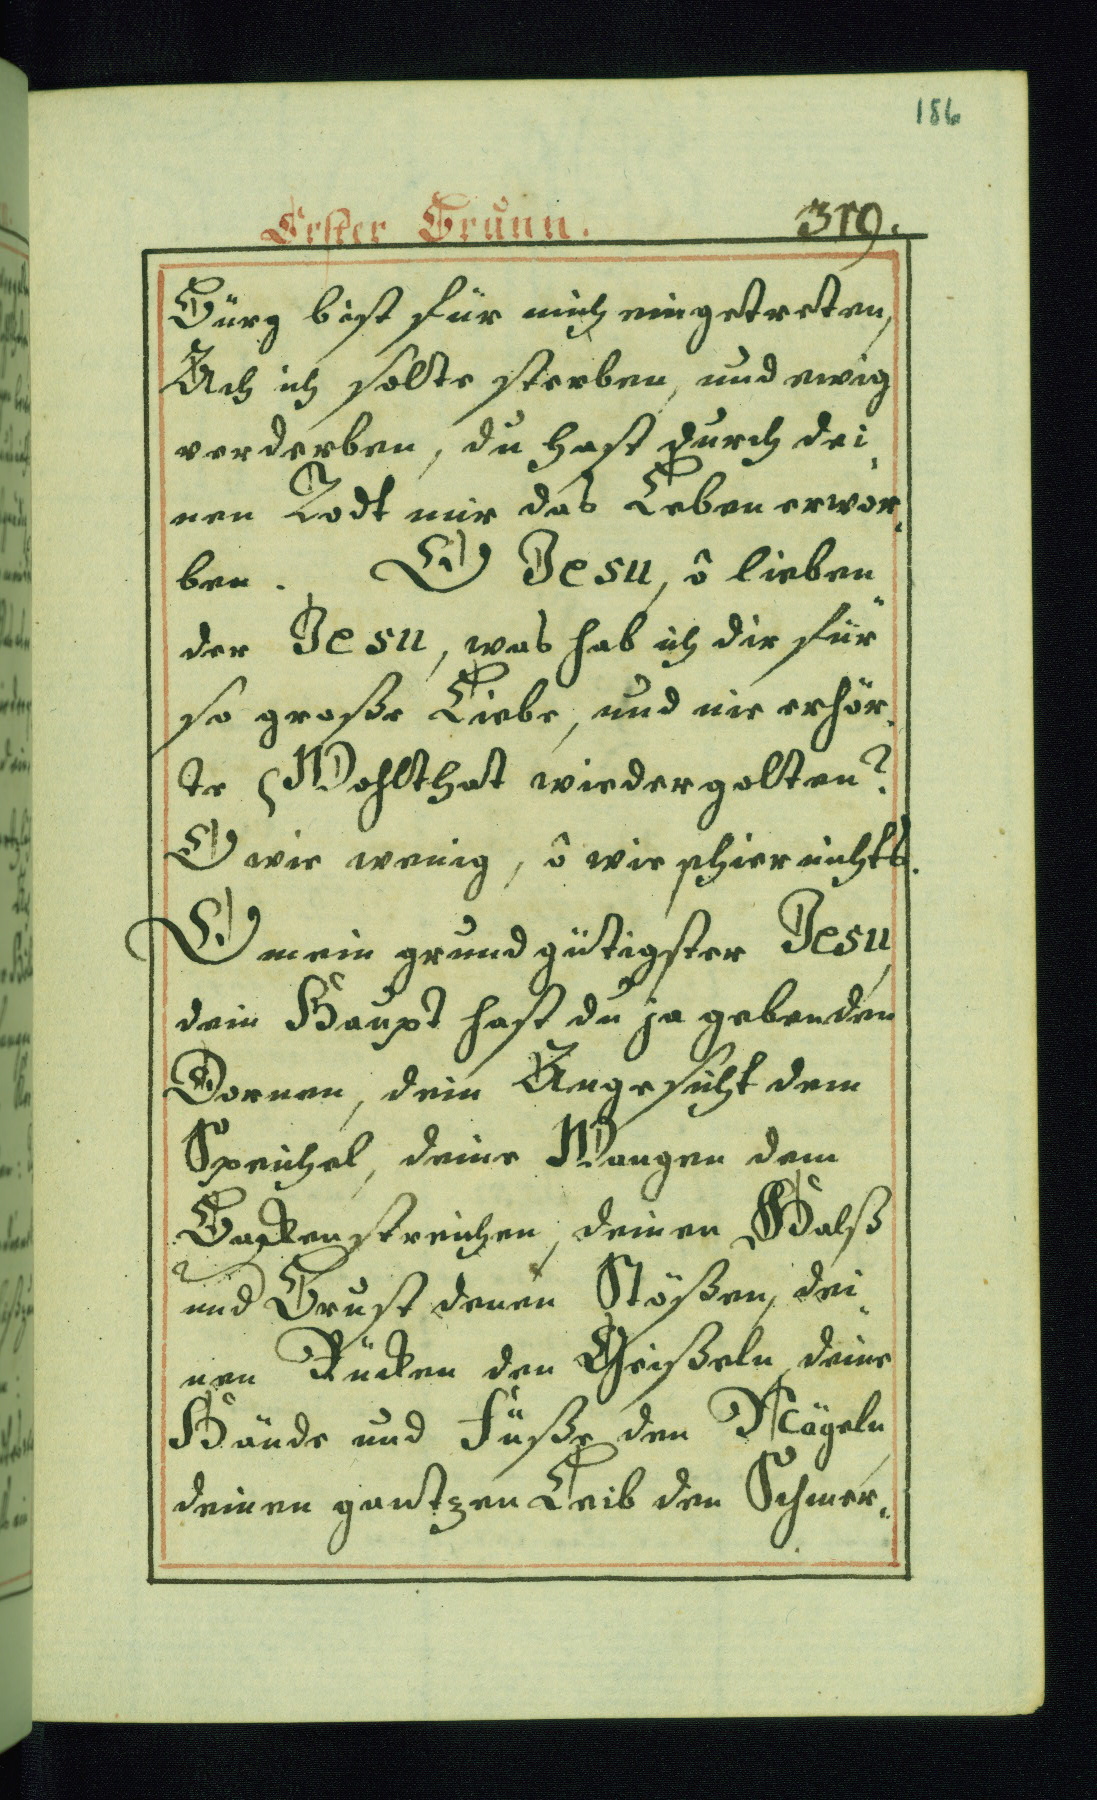 186
Erster Brunn. 319.
Bürg bist für mich eingetreten,
Ach ich solte sterben, und ewig
verderben, du hast durch dei,
nen Todt mir das Leben erwor,
ben. O Jesu, ô lieben,
der Jesu, was hab ich dir für
so große Liebe, und nie erhör,
te Wohlthat wiedergolten?
O wie wenig, ô wie schier nichts.
O mein grundgütigster Jesu
dein Haupt hast du ja geben den
Dornen, dein Angesicht dem
Speichel, deine Wangen dem
Backenstreichen, deinen Halß
und Brust denen Stößen, dei,
nen Rücken den Geißeln, deine
Hände und Füße den Nägeln
deinen gantzen Leib den Schmer,